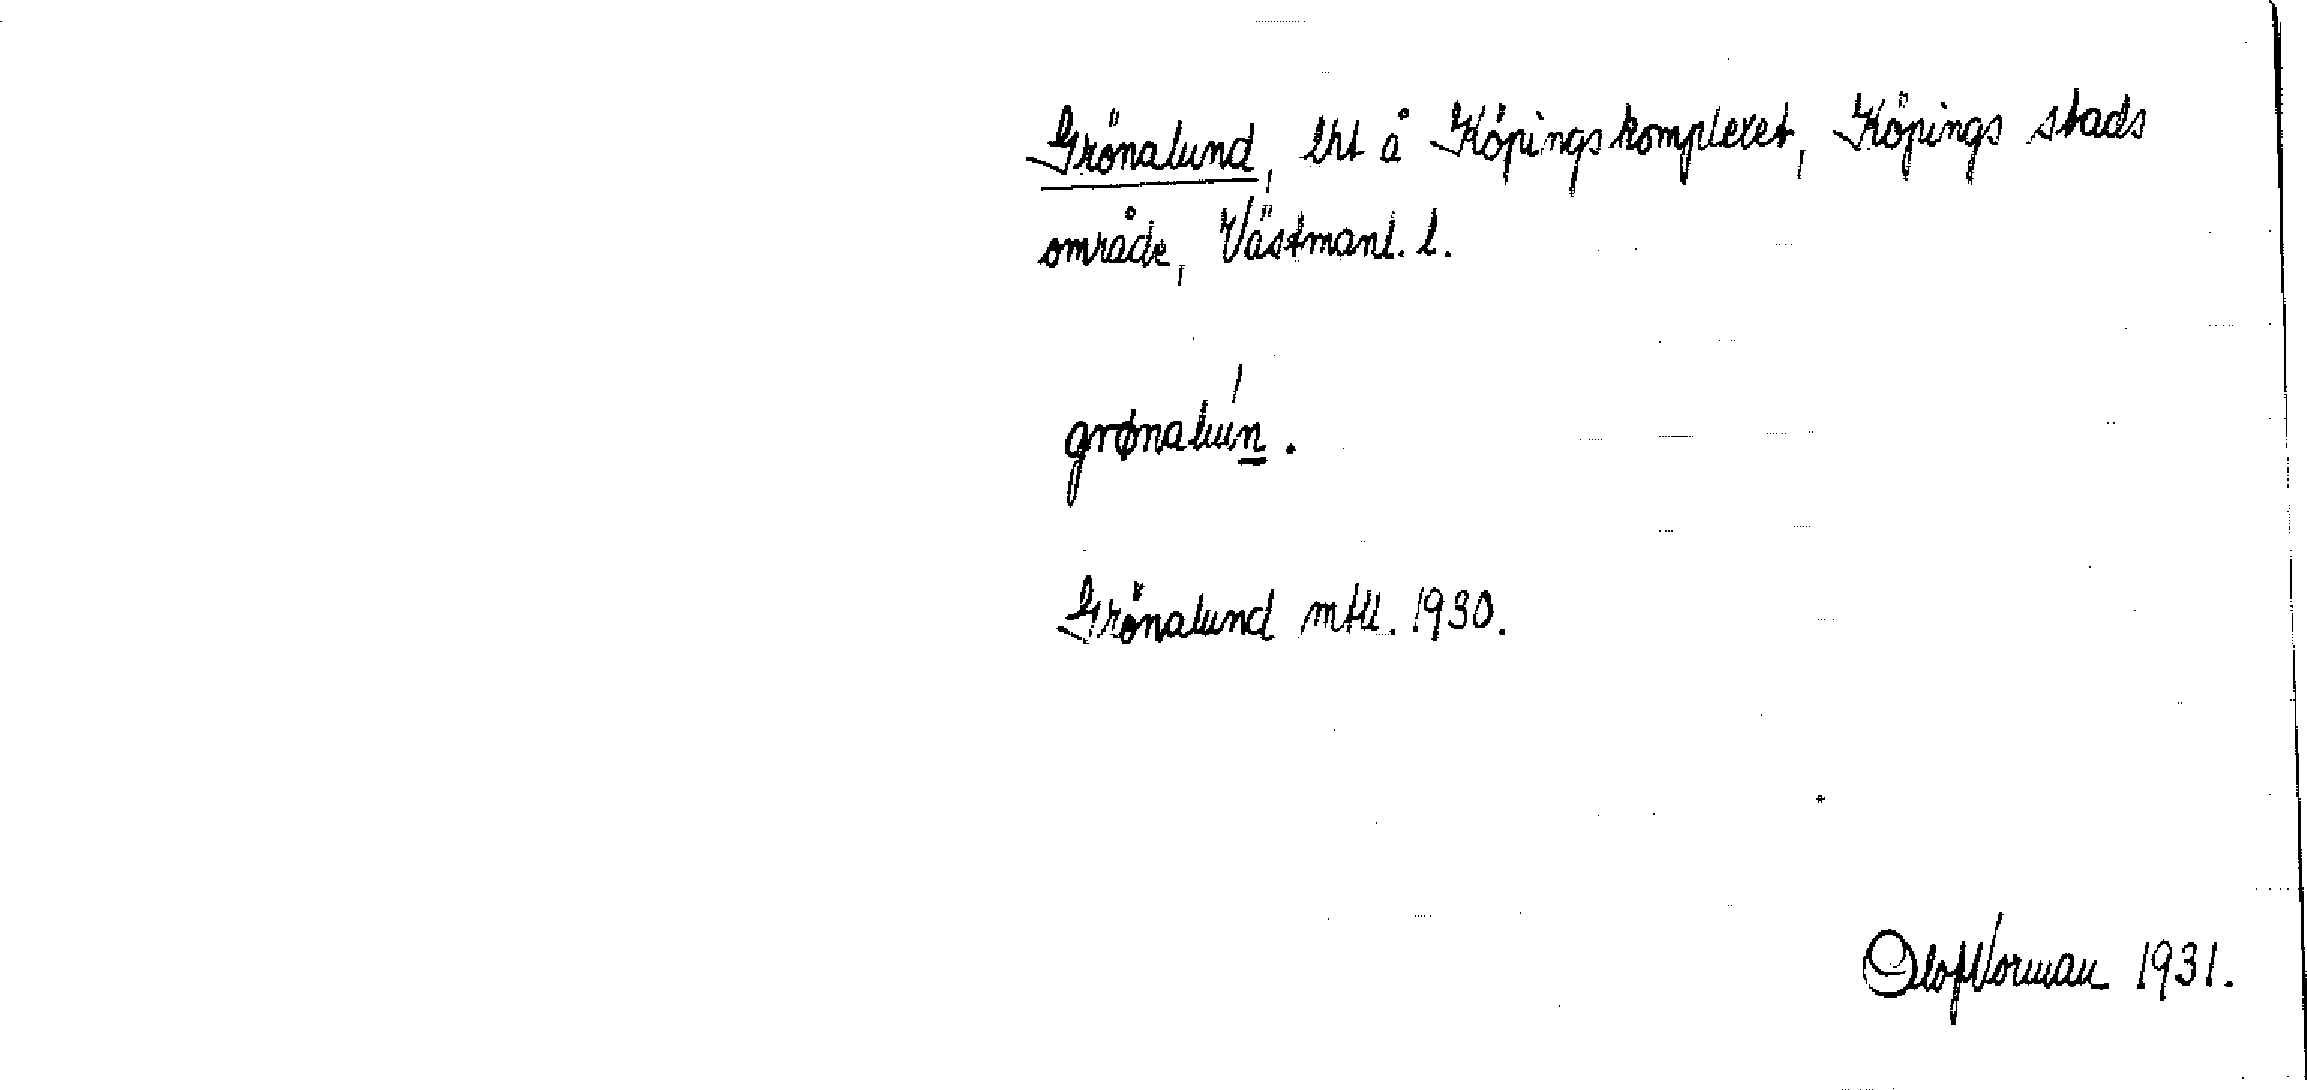 Grönalund, lht å Köpingskomplexet, Köpings stads
område, Västmanl. l.
grønalún.
Grönalund mtll. 1930.
Olof Norman 1931.